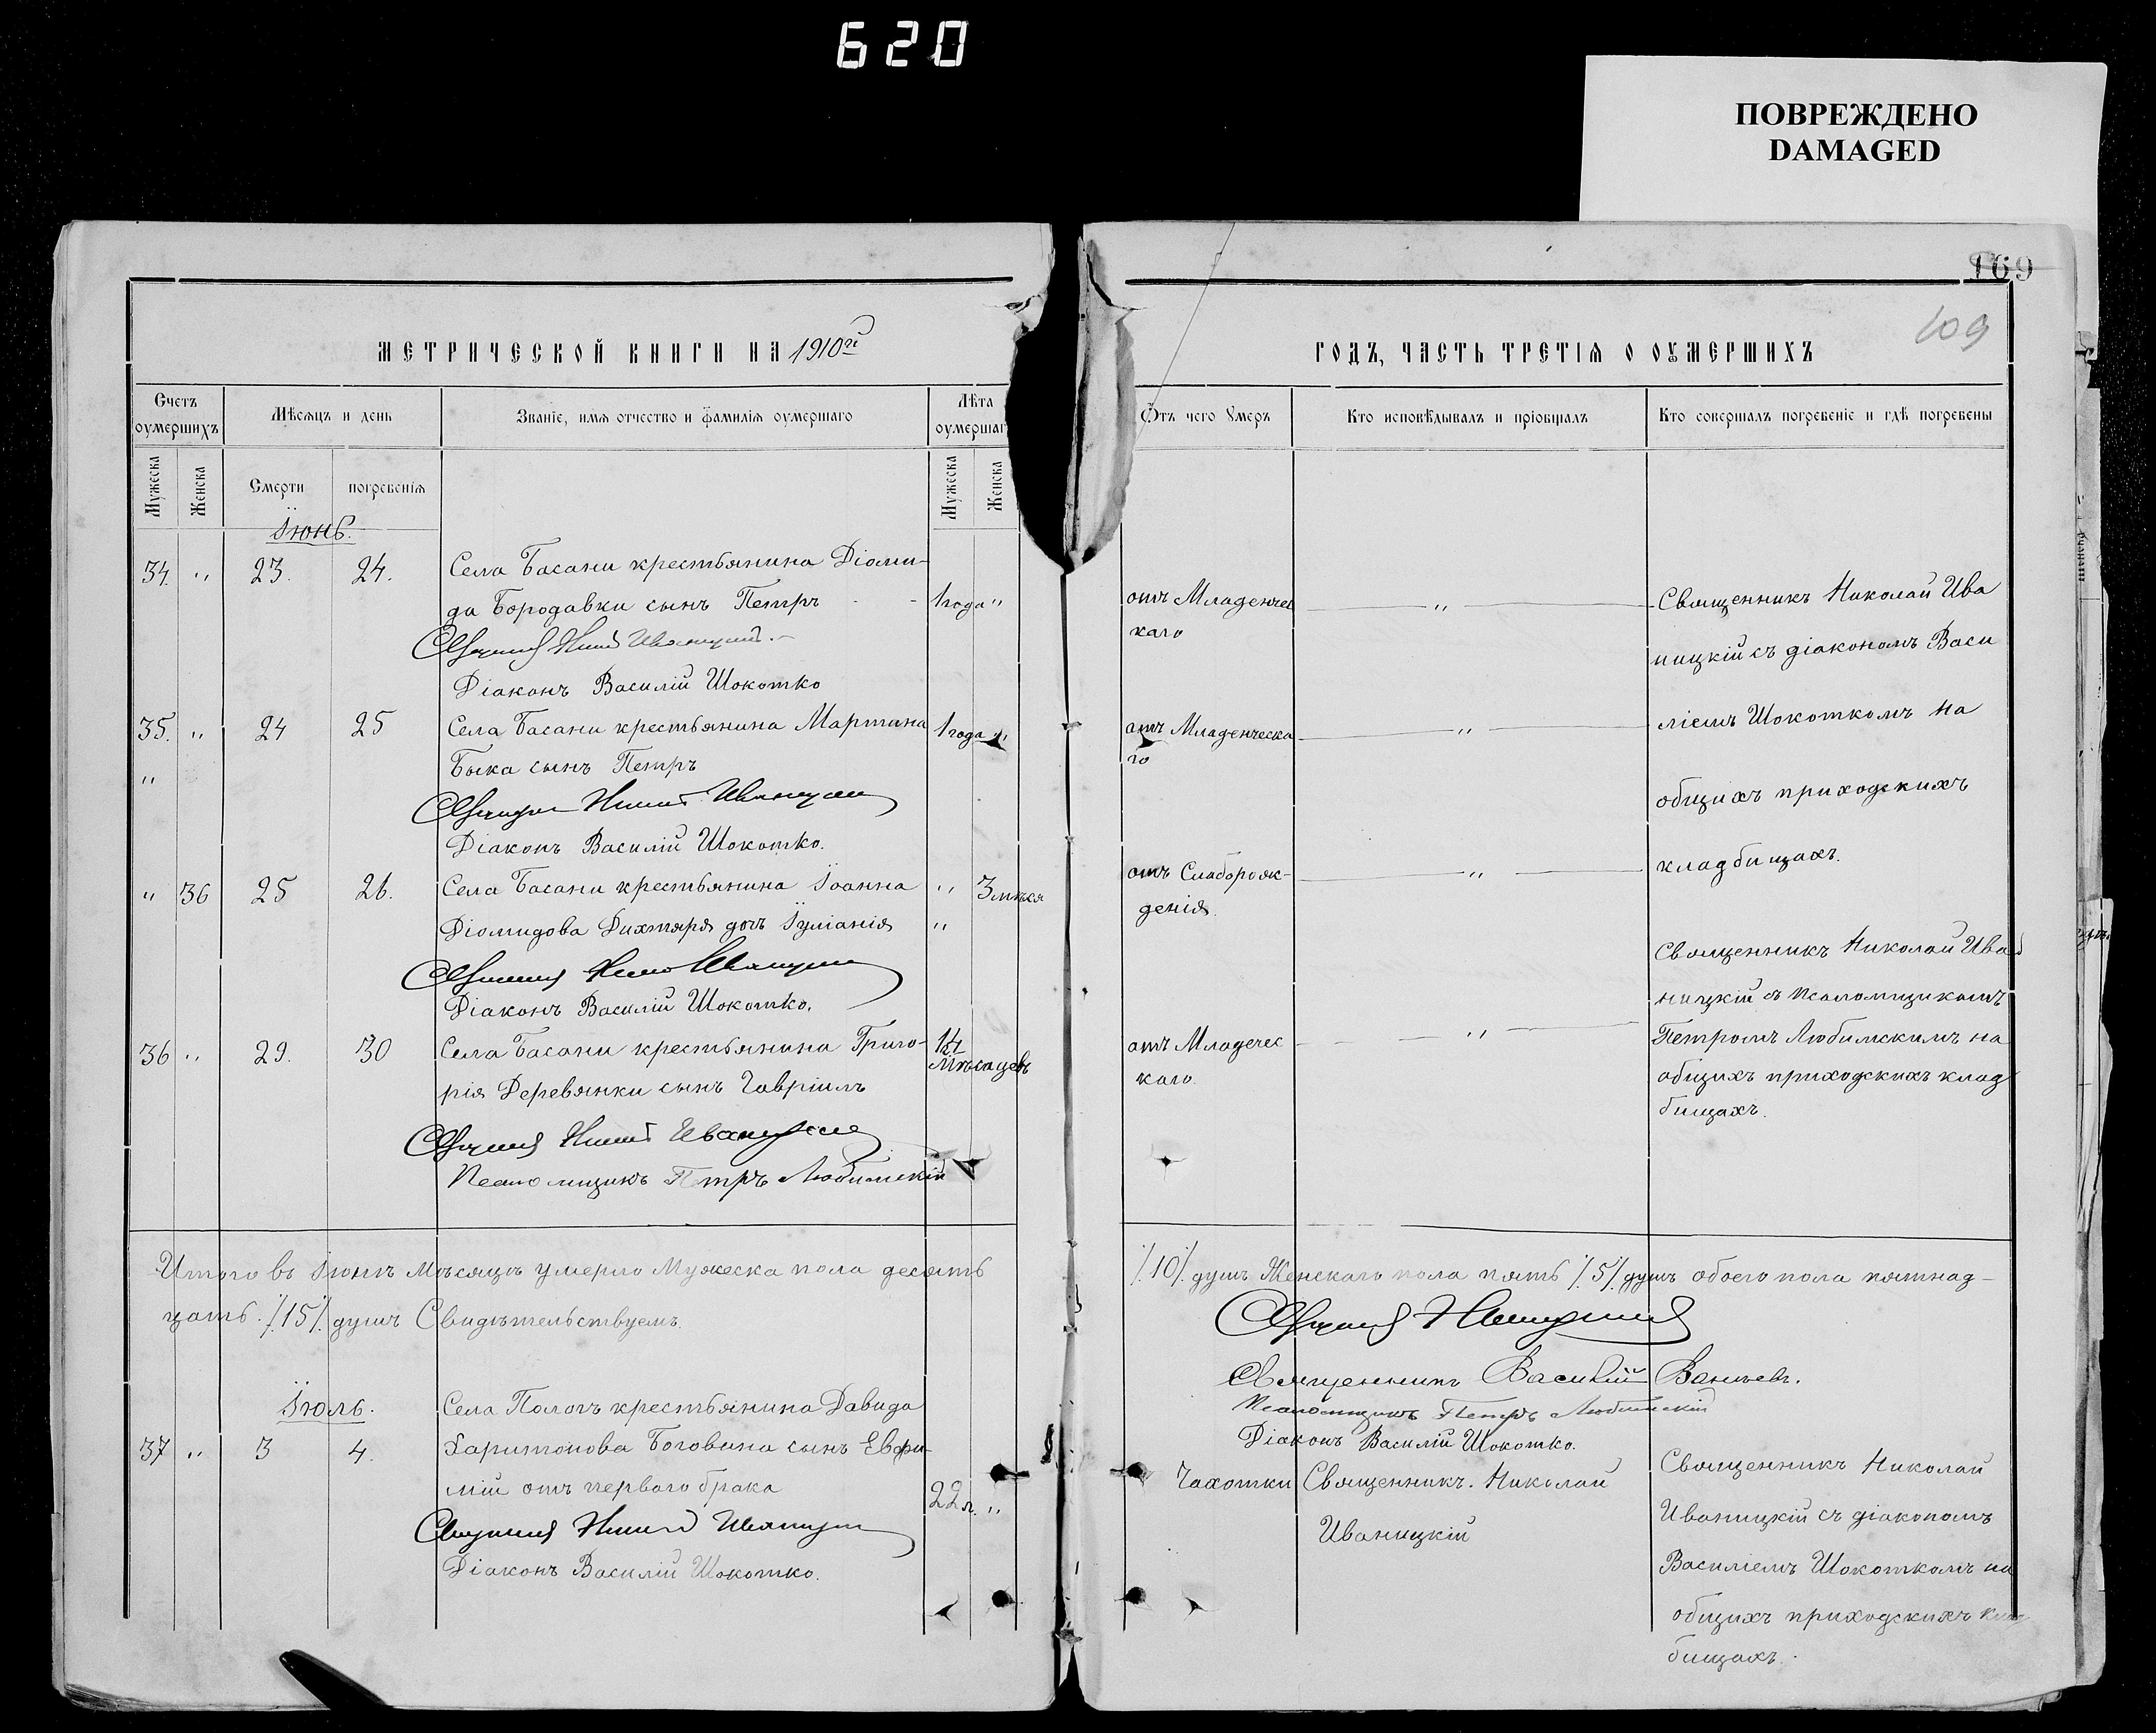 620
ПОВРЕЖДЕНО
DAMAGED
169
109
МЕТРИЧЕСКОЙ КНИГИ НА 1910й
ГОДЪ, ЧАСТЬ ТРЕТІЯ О ОУМЕРШИХЪ
Счетъ оумершихъ
Мѣсяцъ и день
Званіе, имя отчество и фамилія оумершаго
Лѣта оумершаг
Мужеска
Женска
Смерти
погребенія
Мужеска
Женска
Отъ чего Умеръ
Кто исповѣдывалъ и пріобщалъ
Кто совершалъ погребеніе и гдѣ погребены
Іюнь.
34. " 23. 24. Села Басани крестьянина Діоми-
да Бородавки сынъ Петръ - - 1 года "
Діаконъ Василій Шокотко
35. " 24 25 Села Басани крестьянина Мартина 1 года "
" Быка сынъ Петръ
Діаконъ Василій Шокотко.
" 36 25 26. Села Басани крестьянина Іоанна " 3 мѣся
Діомидова Дихтяря дочь Іуліанія "
Діаконъ Василій Шокотко.
36 " 29. 30 Села Басани крестьянина Григо-
Мѣсяцевъ
рія Деревянки сынъ Гавріилъ
Псаломщикъ Петръ Любимскій
Итого въ Іюнѣ мѣсяцѣ умерло Мужеска пола десять
цать ./15/. душъ Свидѣтельствуемъ.
Іюль. Села Пологъ крестьянина Давида
37 " 3 4. Харитонова Боговина сынъ Евфи-
мій отъ перваго брака 22 л. "
Діаконъ Василій Шокотко.
отъ Младенчес " Священникъ Николай Ива
каго
ницкій съ діакономъ Васи
отъ Младенческа " ліемъ Шокоткомъ на
го
общихъ приходскихъ
отъ Слаборож- " кладбищахъ.
денія.
Священникъ Николай Ива
ницкій съ Псаломщикомъ
отъ Младечес " Петромъ Любимскимъ на
каго. общихъ приходскихъ клад
бищахъ.
/.10/. душъ Женскаго пола пять /.5/. душъ обоего пола пятнад-
Священникъ Василій
Псаломщикъ Петръ Любимскій
Діаконъ Василій Шокотко.
Чахотки Священникъ. Николай Священникъ Николай
Иваницкій Иваницкій съ діакономъ
Василіемъ Шокоткомъ на
общихъ приходскихъ
бищахъ.